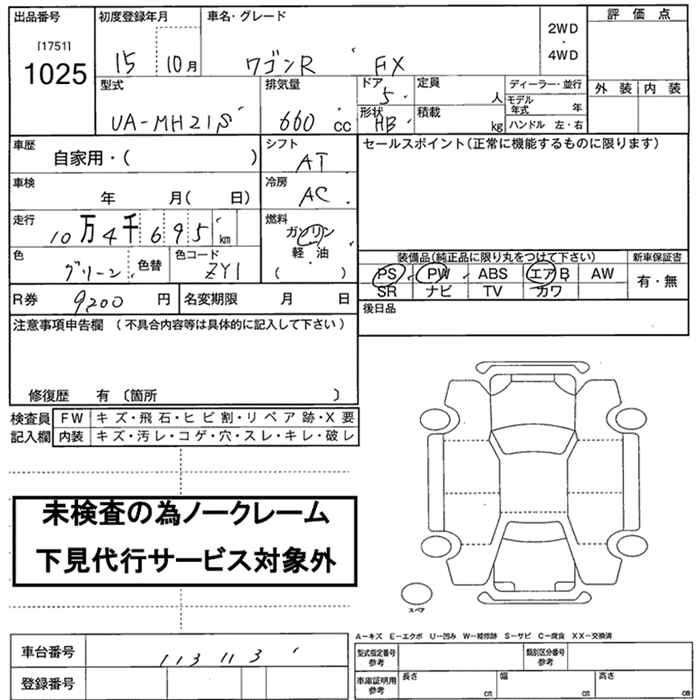 出品番号 初度登録年月 車名・グレード 評価点
[1751]
1025
15 10月 ワゴンR FX
2WD
・
4WD
型式 排気量 ドア 定員 ディーラー・並行 外装 内装
5 人 モデル年式 年
UA-MH21S 660cc 形状 HB 積載 kg ハンドル 左・右
車歴 自家用・( ) シフト AT セールスポイント(正常に機能するものに限ります)
車検 年 月( 日) 冷房 AC
走行 10万4千695km 燃料 ガソリン
軽・油
( )
色 グリーン 色替 色コード ZY1
装備品(純正品に限り丸をつけて下さい) 新車保証書
PS PW ABS エアB AW 有・無
SR ナビ TV カワ
R券 9200円 名変期限 月 日 後日品
注意事項申告欄(不具合内容等は具体的に記入して下さい)
修復歴 有〔箇所 〕
検査員 FW キズ・飛石・ヒビ割・リペア跡・X要
記入欄 内装 キズ・汚レ・コゲ・穴・スレ・キレ・破レ
未検査の為ノークレーム
下見代行サービス対象外
スペア
A−キズ E−エクボ U−凹み W−補修跡 S−サビ C−腐食 XX−交換済
車台番号 113113 型式指定番号 参考 類別区分番号 参考
登録番号 車庫証明用 参考 長さ cm 幅 cm 高さ cm